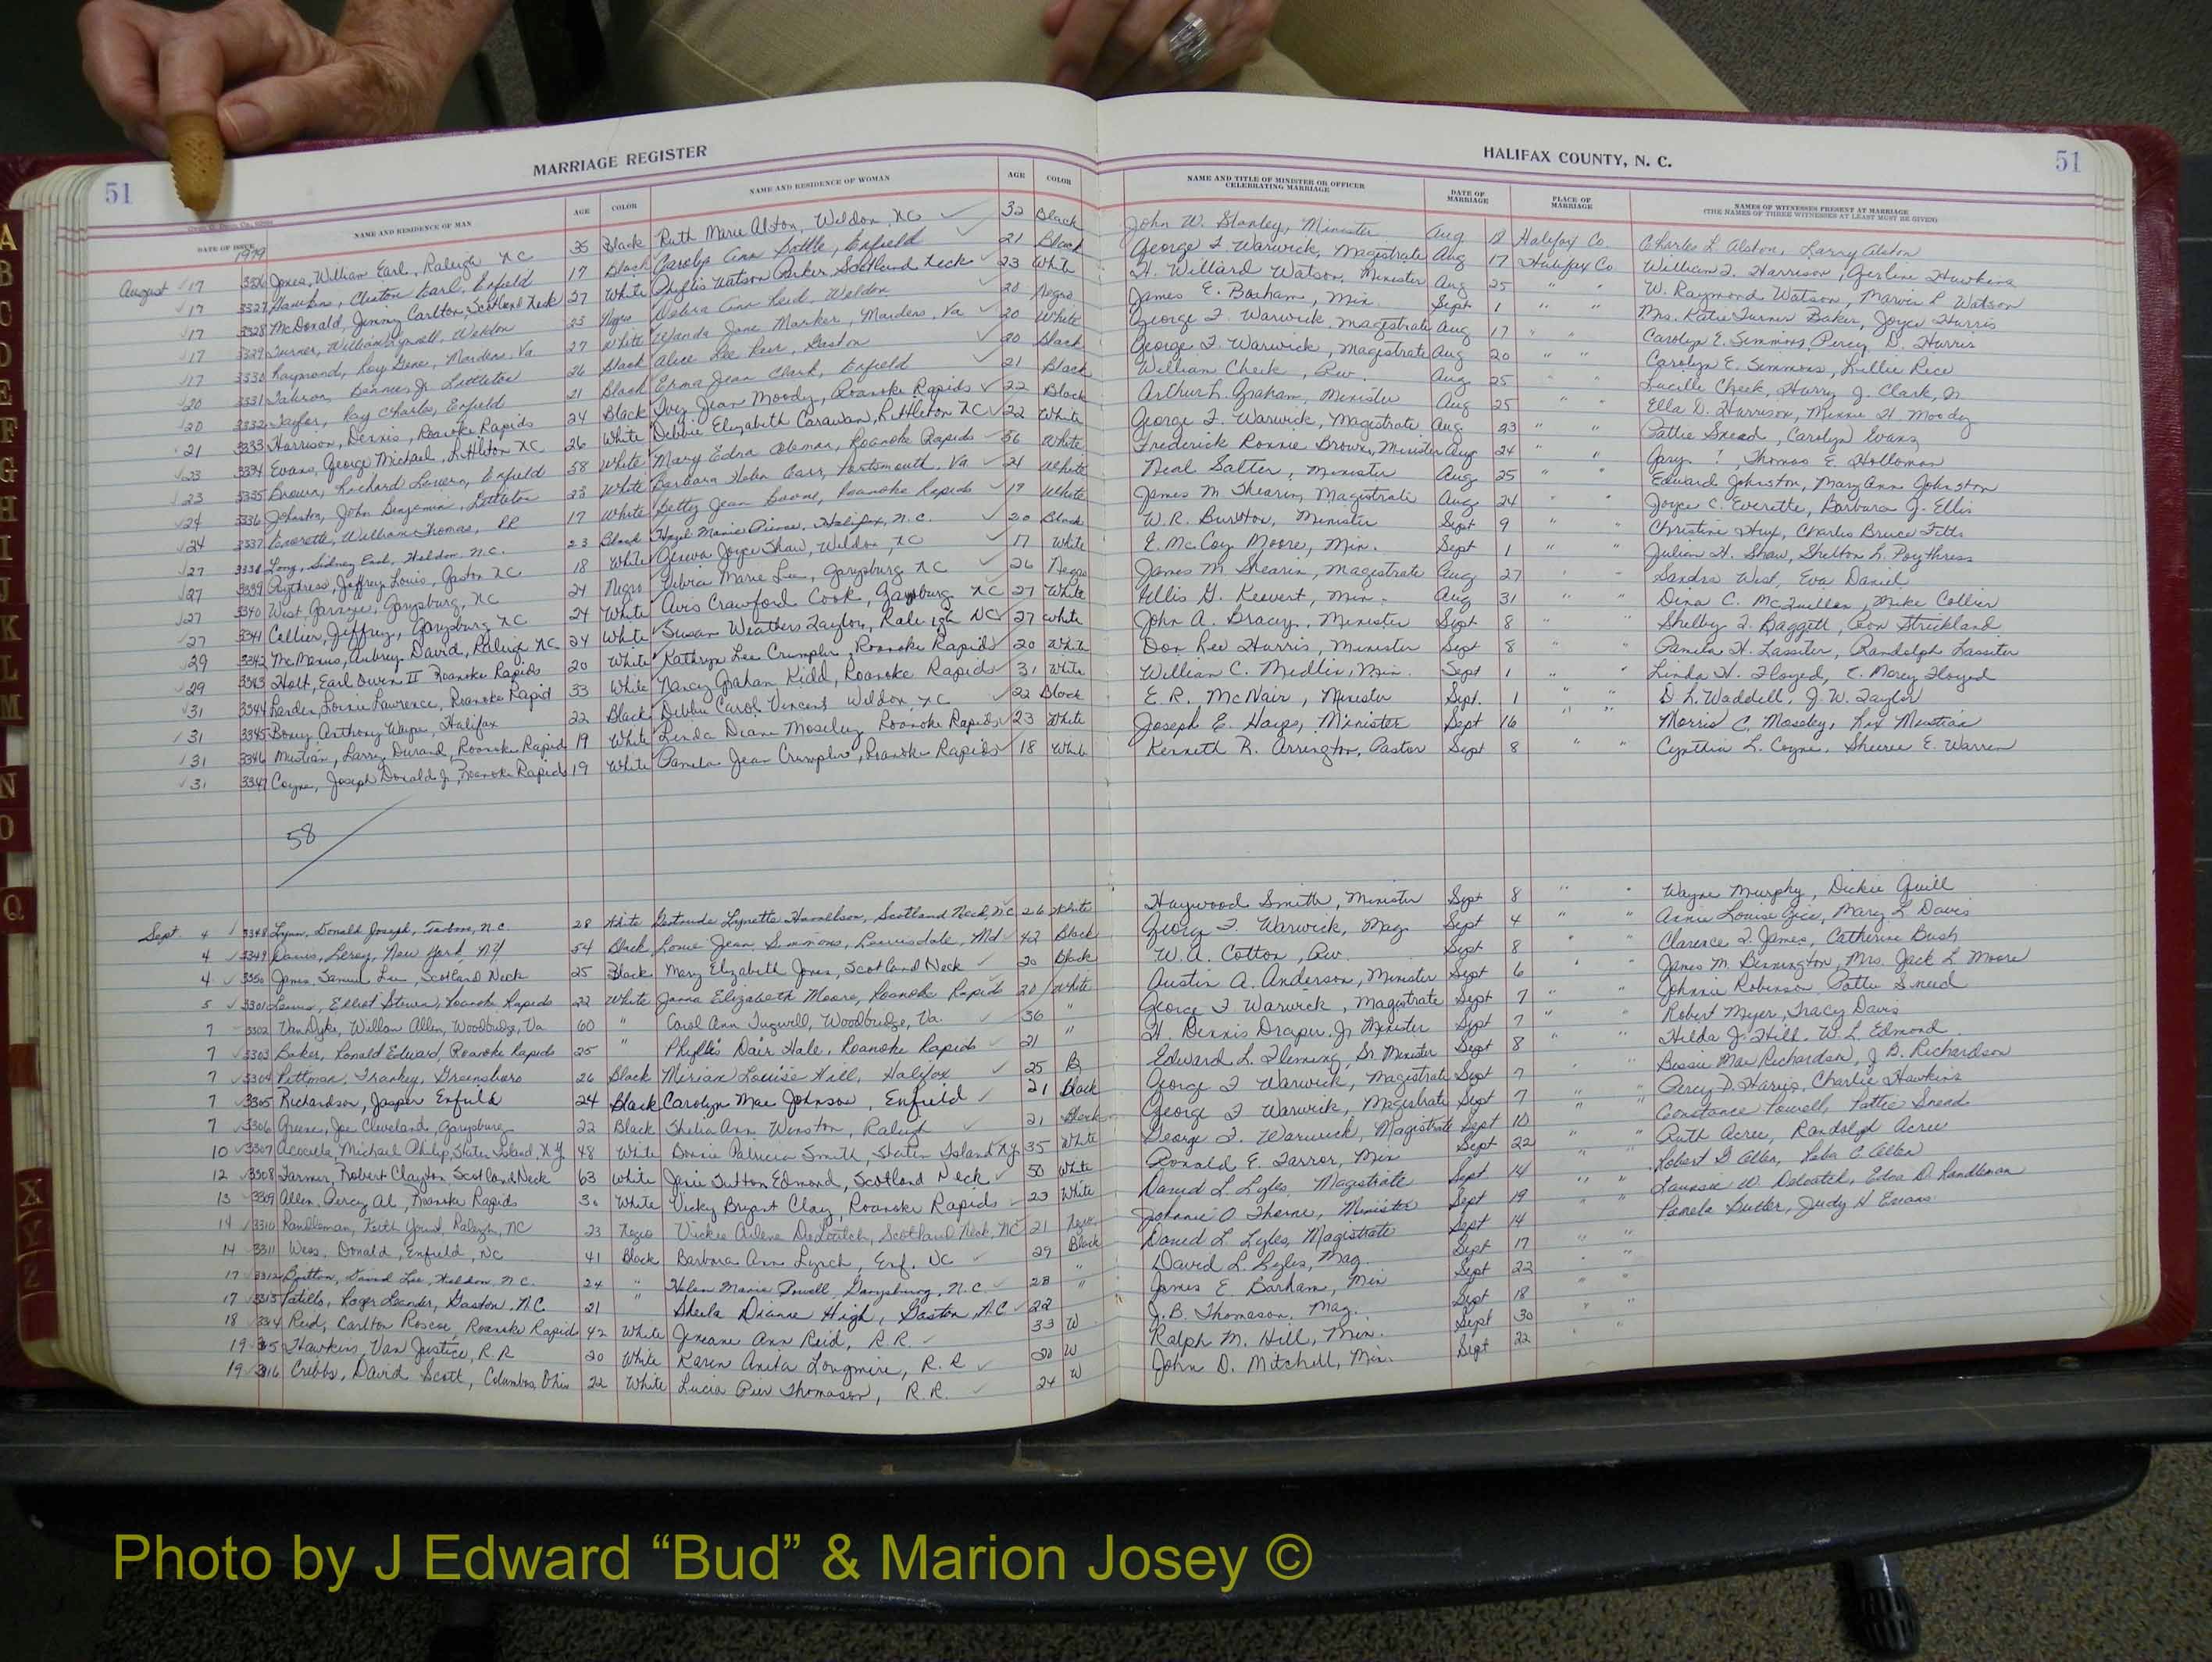 51 MARRIAGE REGISTER
HALIFAX COUNTY, N. C. 51
DATE OF ISSUE NAME AND RESIDENCE OF MAN AGE COLOR NAME AND RESIDENCE OF WOMAN AGE COLOR NAME AND TITLE OF MINISTER OR OFFICER CELEBRATING MARRIAGE DATE OF MARRIAGE PLACE OF MARRIAGE NAMES OF WITNESSES PRESENT AT MARRIAGE (THE NAMES OF THREE WITNESSES AT LEAST MUST BE GIVEN)
1979
August 17 3326 Jones, William Earl, Raleigh NC 35 Black Ruth Marie Alston, Weldon, NC 32 Black John W. Stanley, Minister Aug 18 Halifax Co. Charles L Alston, Larry Alston
17 3327 Hawkins, Cleaton Earl, Enfield 17 Black Carolyn Ann Enfield 21 Black George F Warwick, Magistrate Aug 17 Halifax Co William F. Harrison, Gerline Hawkins
17 3328 McDonald, Jimmy Carlton, Scotland Neck 27 White Phyllis Watson Parker Scotland Neck 23 White H. Willard Watson, Minister Aug 25 " " W. Raymond Watson, Marvin L Watson
17 3329 Turner, William Weldon 23 Negro Debra Ann Reid, Weldon 20 Negro James E. Barham, Min. Sept 1 " " Mrs. Katie Turner Baker, Joyce Harris
17 3330 Raymond, Roy Gene, Va 27 White Wanda Jane Va 20 White George F. Warwick, Magistrate Aug 17 " " Carolyn E. Simmons, Percy D. Harris
20 3331 Bennie Jr. Littleton 26 Black Alice Lee Gaston 20 Black George F Warwick, Magistrate Aug 20 " " Carolyn E. Simmons, Lillie Rice
20 3332 Taylor, Ray Charles, Enfield 21 Black Erma Jean Clark, Enfield 21 Black William Cheek, Rev. Aug 25 " " Lucille Cheek, Harry J. Clark, Jr.
21 3333 Harrison, Dennis, Roanoke Rapids 24 Black Ivey Jean Moody, Roanoke Rapids 22 Black Arthur L. Graham, Minister Aug 25 " " Ella D. Harrison, Minnie H. Moody
23 3334 Evans, George Michael, Littleton NC 26 White Debbie Elizabeth Carawan, Littleton NC 22 White George F. Warwick, Magistrate Aug 23 " " Pattie Snead, Carolyn Evans
23 3335 Brown, Richard Enfield 58 White Mary Edna Coleman, Roanoke Rapids 56 White Frederick Ronnie Brown, Minister Aug 24 " " Gary ?, Thomas E. Holloman
24 3336 Johnston, John Benjamin, Littleton 23 White Barbara Helen Carr, Portsmouth, Va 21 White Neal Salter, Minister Aug 25 " " Edward Johnston, Mary Ann Johnston
24 3337 Everette, William Thomas, RR 17 White Betty Jean Boone, Roanoke Rapids 19 White James M Shearin, Magistrate Aug 24 " " Joyce C. Everette, Barbara J. Ellis
27 3338 Long, Sidney Earl, Weldon, N.C. 23 Black Hazel Marie Pierce, Halifax, N.C. 20 Black W. R. Burston, Minister Sept 9 " " Christine Hux, Charles Bruce Fitts
27 3339 Poythress, Jeffrey Louis, Gaston NC 18 White Joyce Shaw, Weldon, NC 17 White E. McCoy Moore, Min. Sept 1 " " Julian H. Shaw, Shelton L. Poythress
27 3340 West, Garysburg, NC 24 Negro Debria Marie Lee, Garysburg NC 26 Negro James M Shearin, Magistrate Aug 27 " " Sandra West, Eva Daniel
27 3341 Collier, Jeffrey, Garysburg NC 24 White Avis Crawford Cook, Garysburg NC 27 White Ellis G. Keevert, Min. Aug 31 " " Dina C. McQuillan, Mike Collier
29 3342 McManus, Aubrey David, Raleigh NC 24 White Susan Weathers Taylor, Raleigh NC 27 White John A. Bracy, Minister Sept 8 " " Shelby F. Baggett, Ron Strickland
29 3343 Holt, Earl Owen II Roanoke Rapids 20 White Kathryn Lee Crumpler, Roanoke Rapids 20 White Don Lee Harris, Minister Sept 8 " " Pamela H. Lassiter, Randolph Lassiter
31 3344 Lawrence, Roanoke Rapid 33 White Nancy Graham Kidd, Roanoke Rapids 31 White William C. Medlin, Min. Sept 1 " " Linda H. Floyed, E. Marcy Floyed
31 3345 Anthony Wayne, Halifax 22 Black Debbie Carol Vincent Weldon, NC 22 Black E. R. McNair, Minister Sept. 1 " " D. L. Waddell, J. W. Taylor
31 3346 Mustian, Larry Durand, Roanoke Rapid 19 White Linda Diane Moseley Roanoke Rapids 23 White Joseph E. Hayes, Minister Sept 16 " " Morris C. Moseley, Rix Mustian
31 3347 Coyne, Joseph Donald Jr, Roanoke Rapids 19 White Pamela Jean Crumpler, Roanoke Rapids 18 White Kenneth R. Arrington, Pastor Sept 8 " " Cynthia L. Coyne, Sheree E. Warren
58
Sept. 4 3348 Lynn, Donald Joseph, Tarboro, N.C 28 White Gertrude Lynette Harrelson, Scotland Neck, NC 26 White Haywood Smith, Minister Sept 8 " " Wayne Murphy, Dickie Quill
4 3349 Davis, Leroy, New York, NY 54 Black Louie Jean Simmons, Md 42 Black George F. Warwick, Mag Sept 4 " " Annie Louise Gee, Mary L Davis
4 3350 Jones, Samuel Lee, Scotland Neck 25 Black Mary Elizabeth Jones, Scotland Neck 20 Black W. A. Cotton, Rev. Sept 8 " " Clarence F. James, Catherine Bush
5 3301 Lewis, Elliot Steven, Roanoke Rapids 22 White Janna Elizabeth Moore, Roanoke Rapids 20 White Austin A. Anderson, Minister Sept 6 " James M. Bennington, Mrs. Jack L Moore
7 3302 VanDyke, Willan Allen, Woodbridge, Va 60 " Carol Ann Tugwell, Woodbridge, Va. 36 " George F Warwick, Magistrate Sept 7 " " Johnnie Robinson, Pattie Snead
7 3303 Baker, Ronald Edward, Roanoke Rapids 25 " Phyllis Dair Hale, Roanoke Rapids 21 " H. Dennis Draper Jr Minister Sept 7 " " Robert Myer, Tracy Davis
7 3304 Pittman, Frankey, Greensboro 26 Black Mirian Louise Hill, Halifax 25 B Edward L. Fleming, Sr Minister Sept 8 " " Hilda J. Hill, W. L. Edmond
7 3305 Richardson, Jasper Enfield 24 Black Carolyn Mae Johnson, Enfield 21 Black George F Warwick, Magistrate Sept 7 " Bessie Mae Richardson, J B. Richardson
7 3306 Greene, Joe Cleveland, Garysburg 22 Black Shelia Ann Winston, Raleigh 21 Black George F Warwick, Magistrate Sept 7 " " Percy D. Harris, Charlie Hawkins
10 3307 Acocella, Michael Philip, Staten Island, NY 48 White Bonnie Patricia Smith, Staten Island NY 35 White George F. Warwick, Magistrate Sept 10 " " Constance Powell, Pattie Snead
12 3308 Farmer, Robert Clayton, Scotland Neck 63 White Janie Sutton Edmond, Scotland Neck 50 White Ronald E. Farror, Min Sept 22 " " Ruth Acree, Randolph Acree
13 3309 Allen, Percy Al, Roanoke Rapids 30 White Vicky Bryant Clay, Roanoke Rapids 23 White David L. Lyles, Magistrate Sept. 14 " " Robert G Allen, Reba C Allen
14 3310 Randleman, Keith Raleigh, NC 23 Negro Vickie Arlene DeLoatch, Scotland Neck, NC 21 Negro Johnnie O Thorne, Minister Sept 19 " " Laurence W. Deloatch, Edna D. Randleman
14 3311 Wess, Donald, Enfield, NC 41 Black Barbara Ann Lynch, Enf. NC 29 Black David L. Lyles, Magistrate Sept 14 Pamela Butler, Judy H Evans
17 3312 Britton, David Lee, Weldon, N.C. 24 " Helen Marie Powell, Garysburg, N.C. 28 " David L. Lyles, Mag. Sept 17 " "
17 3313 Patillo, Roger Leander, Gaston, N.C. 21 " Sheila Dianne High, Gaston, N.C 22 " James E. Barham, Min Sept 22 "
18 3314 Reid, Carlton Roscoe, Roanoke Rapids 42 White Jineane Ann Reid, R.R. 33 W J. B. Thomason, Mag. Sept 18 " "
19 3315 Hawkins, Van Justice, R.R 20 White Karen Anita Longmire, R.R 20 W Ralph M. Hill, Min. Sept 30 " "
19 3316 Cribbs, David Scott, Columbus, Ohio 22 White Lucia Thomason, R.R. 24 W John D. Mitchell, Min. Sept 22 " "
A
B
C
D
E
F
G
H
I
J
K
L
M
N
O
Q
X
Y
Z
Photo by J Edward “Bud” & Marion Josey ©